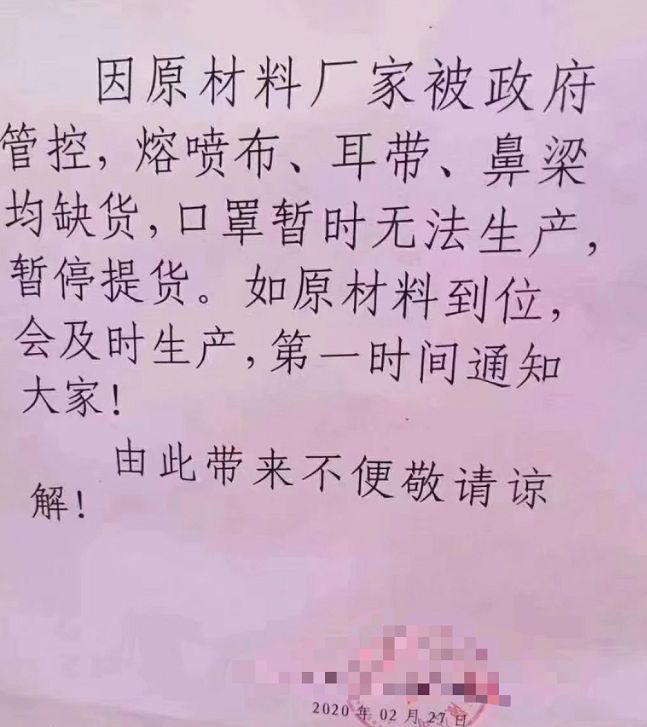 因原材料厂家被政府
管控，熔喷布、耳带、鼻梁
均缺货，口罩暂时无法生产，
暂停提货。如原材料到位，
会及时生产，第一时间通知
大家！
由此带来不便敬请谅
解！
2020 年 02 月 27 日